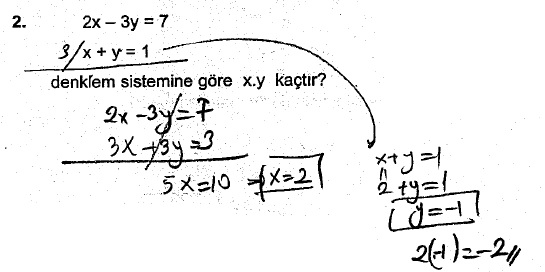 2. 2x – 3y = 7
3/ x + y = 1
denklem sistemine göre x.y kaçtır?
2x -3y=7
3x +3y=3
5x=10 ⇒ x=2
x+y=1
2 +y=1
y=-1
2(-1)=-2//